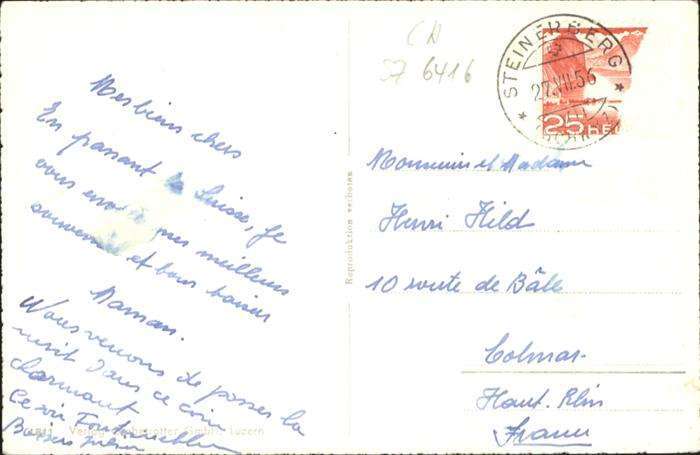 Mes biens chers
En passant la Suisse, je
vous envoie mes meilleurs
souvenirs et bons baisers
Maman.
Nous venons de passer la
nuit dans ce coin
charmant
Ce soir Fontainebleau
Baisers
4811 Verlag Globetrotter GmbH. Luzern
Reproduktion verboten
CH
57 6416
STEINERBERG
27.VII.56
25
Monsieur et Madame
Henri Hild
10 route de Bâle
Colmar
Haut. Rhin
France